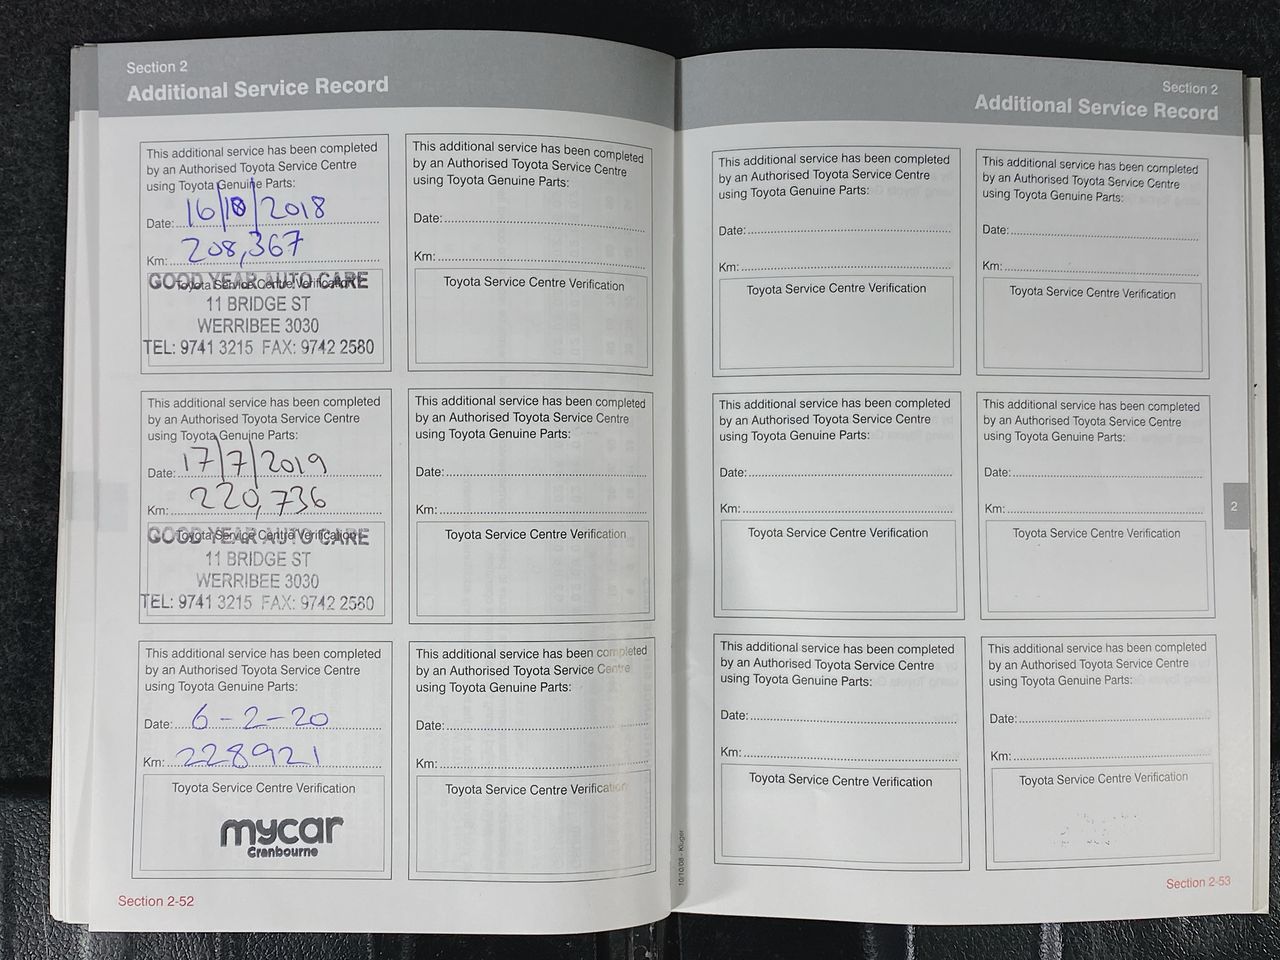 Section 2
Additional Service Record
This additional service has been completed
by an Authorised Toyota Service Centre
using Toyota Genuine Parts:
Date: 16/10/2018
Km: 208,367
Toyota Service Centre Verification
GOOD YEAR AUTO CARE
11 BRIDGE ST
WERRIBEE 3030
TEL: 9741 3215 FAX: 9742 2580
This additional service has been completed
by an Authorised Toyota Service Centre
using Toyota Genuine Parts:
Date: 17/7/2019
Km: 220,736
Toyota Service Centre Verification
GOOD YEAR AUTO CARE
11 BRIDGE ST
WERRIBEE 3030
TEL: 9741 3215 FAX: 9742 2580
This additional service has been completed
by an Authorised Toyota Service Centre
using Toyota Genuine Parts:
Date: 6-2-20
Km: 228921
Toyota Service Centre Verification
mycar
Cranbourne
This additional service has been completed
by an Authorised Toyota Service Centre
using Toyota Genuine Parts:
Date:
Km:
Toyota Service Centre Verification
This additional service has been completed
by an Authorised Toyota Service Centre
using Toyota Genuine Parts:
Date:
Km:
Toyota Service Centre Verification
This additional service has been completed
by an Authorised Toyota Service Centre
using Toyota Genuine Parts:
Date:
Km:
Toyota Service Centre Verification
Section 2-52
10/10/08 - Kluger
Section 2
Additional Service Record
This additional service has been completed
by an Authorised Toyota Service Centre
using Toyota Genuine Parts:
Date:
Km:
Toyota Service Centre Verification
This additional service has been completed
by an Authorised Toyota Service Centre
using Toyota Genuine Parts:
Date:
Km:
Toyota Service Centre Verification
This additional service has been completed
by an Authorised Toyota Service Centre
using Toyota Genuine Parts:
Date:
Km:
Toyota Service Centre Verification
This additional service has been completed
by an Authorised Toyota Service Centre
using Toyota Genuine Parts:
Date:
Km:
Toyota Service Centre Verification
This additional service has been completed
by an Authorised Toyota Service Centre
using Toyota Genuine Parts:
Date:
Km:
Toyota Service Centre Verification
This additional service has been completed
by an Authorised Toyota Service Centre
using Toyota Genuine Parts:
Date:
Km:
Toyota Service Centre Verification
2
Section 2-53